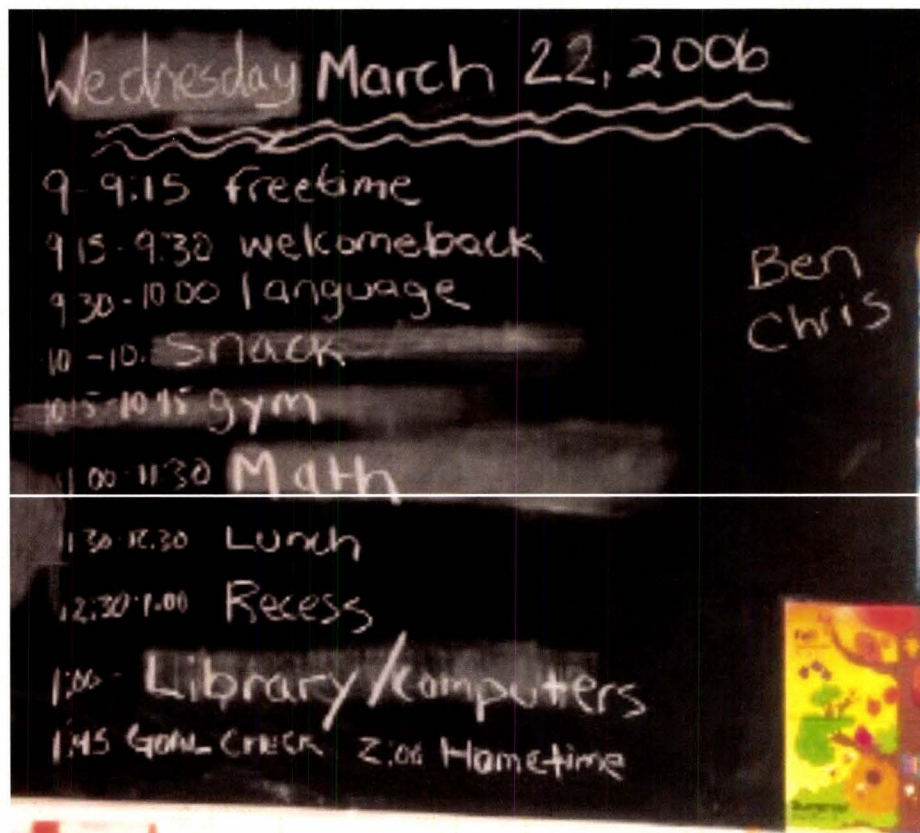 Wednesday March 22, 2006
9-9:15 freetime
9 15-9:30 welcomeback
9 30-10 00 language
10-10. Snack
10 15-10 45 gym
11 00-11:30 Math
11 30-12.30 Lunch
12:30-1.00 Recess
1:00- Library/computers
1:45 GOAL CHECK 2:00 Hometime
Ben
Chris
Fall
Summer